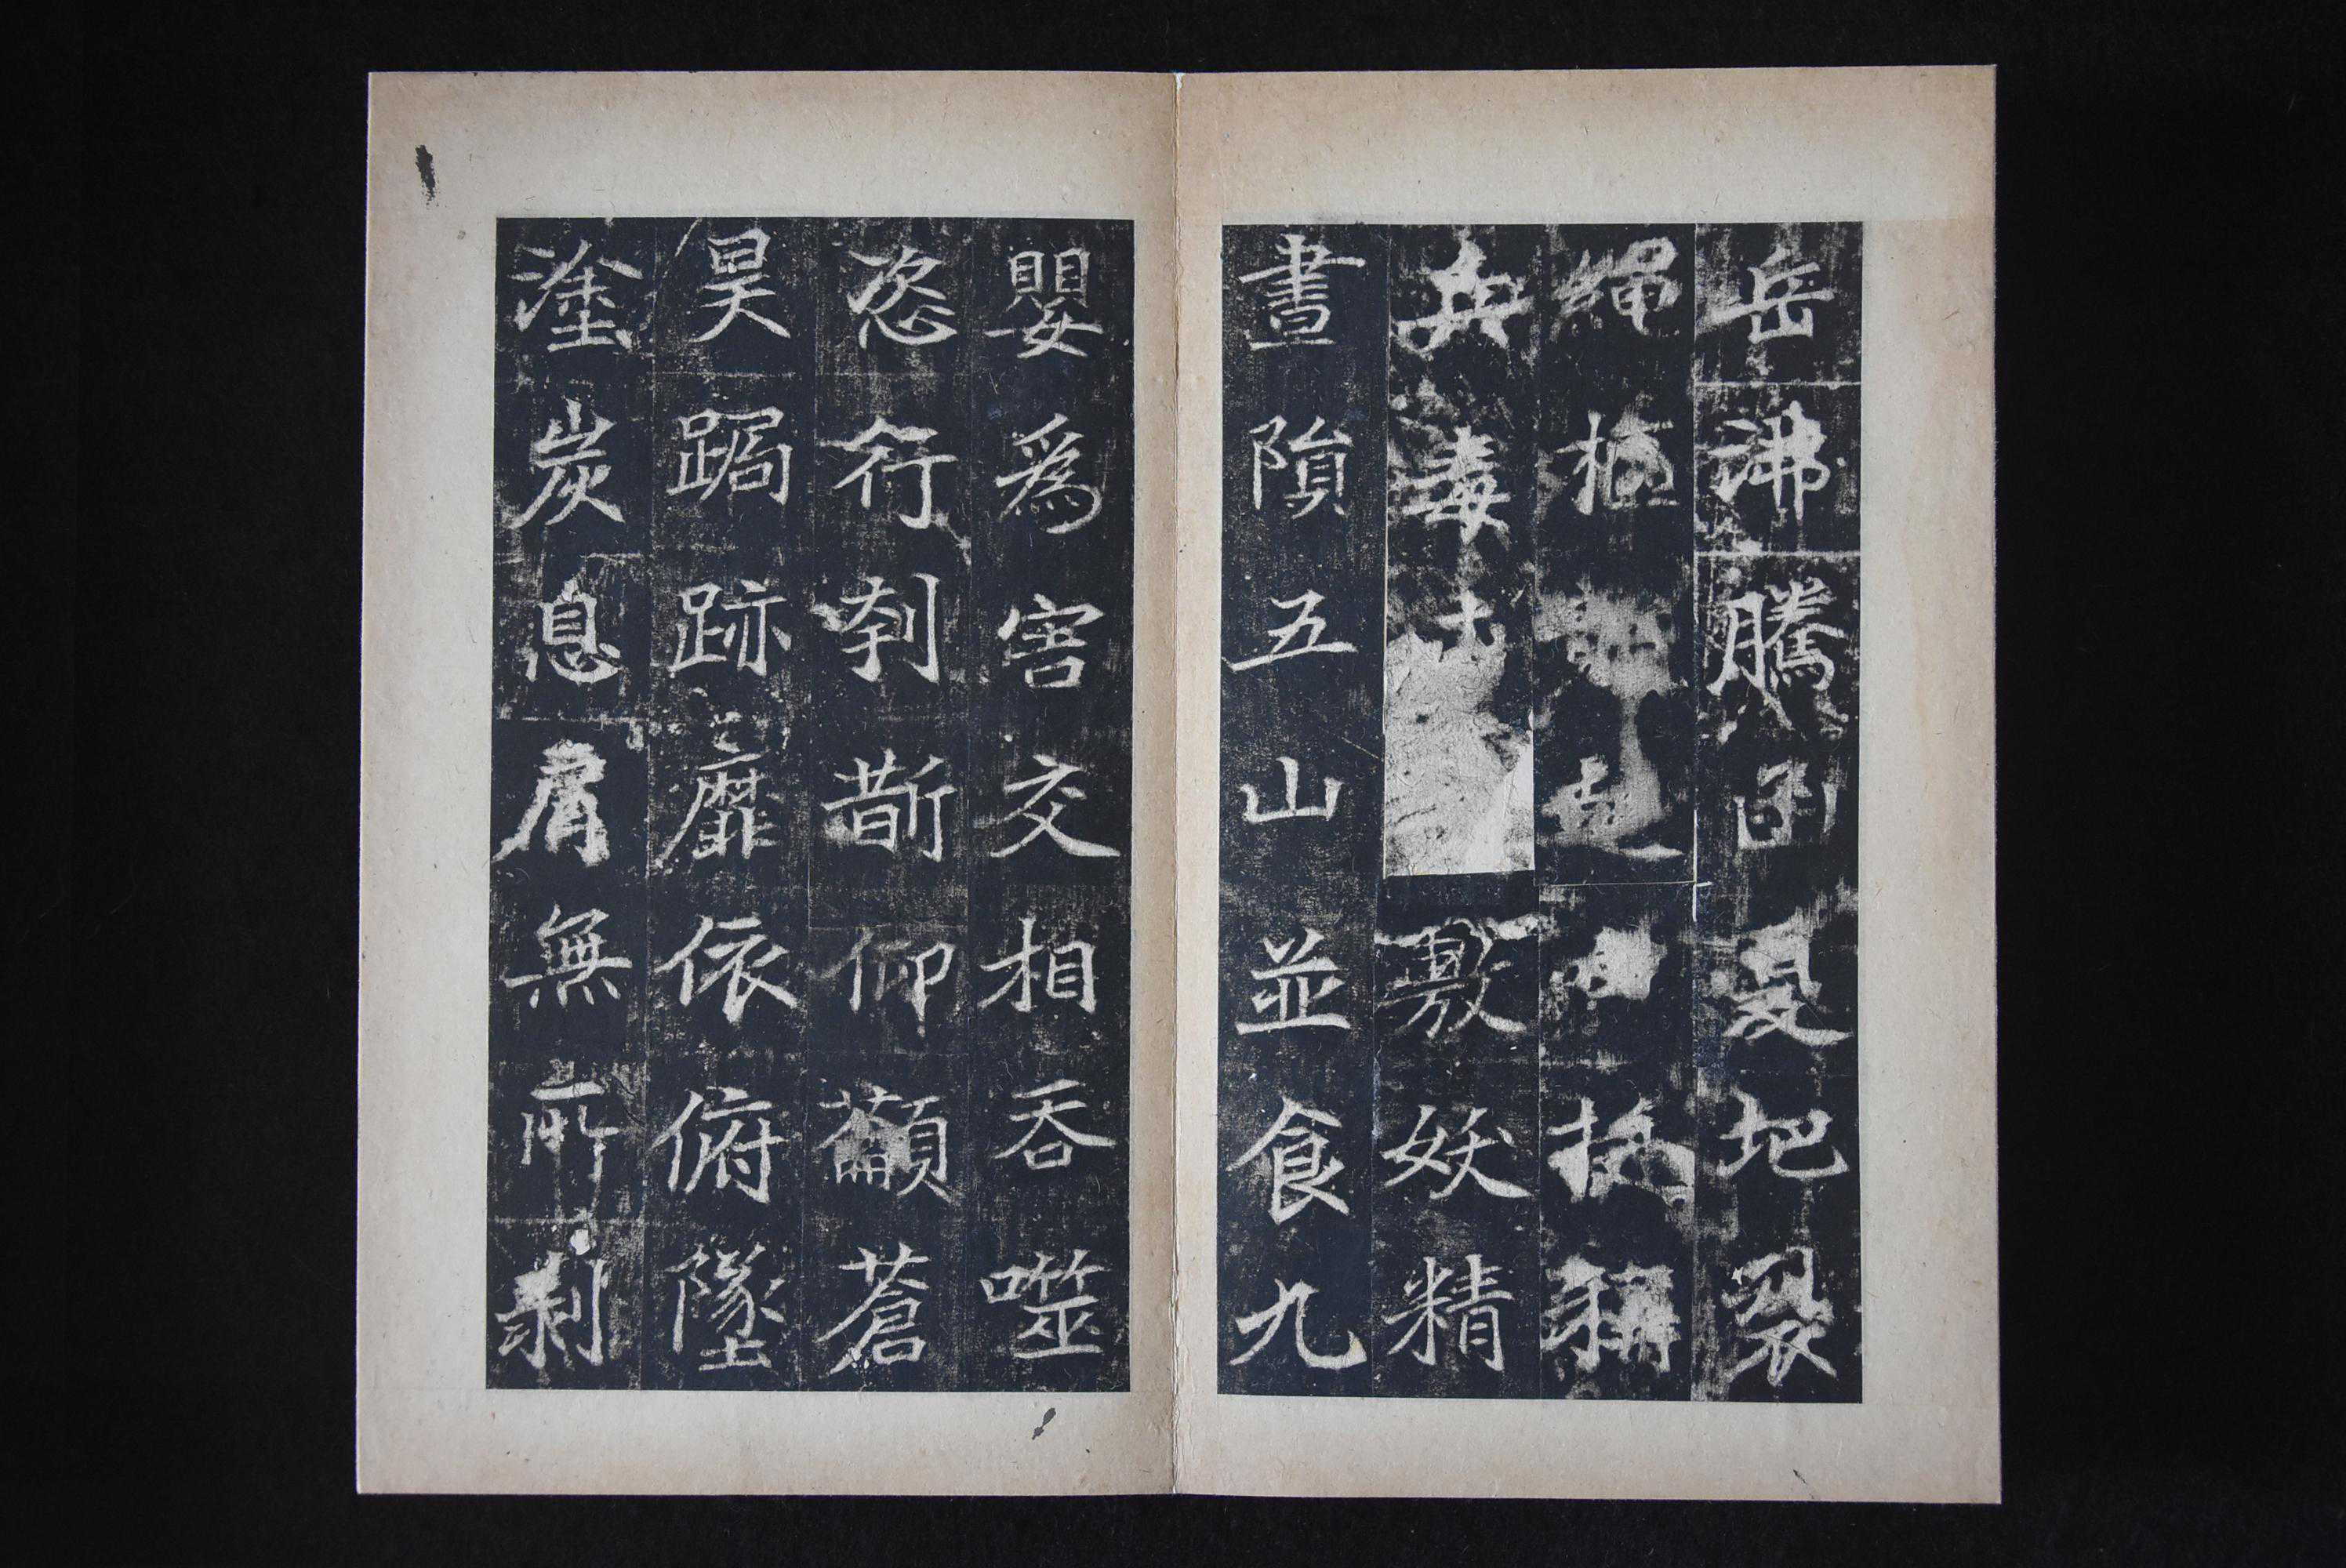 岳沸騰函夏圮裂
繩樞
兵毒敷妖精
晝隕五山並食九
嬰爲害交相吞噬
恣行刳斮仰籲蒼
昊跼跡靡依俯墜
塗炭息肩無所剥